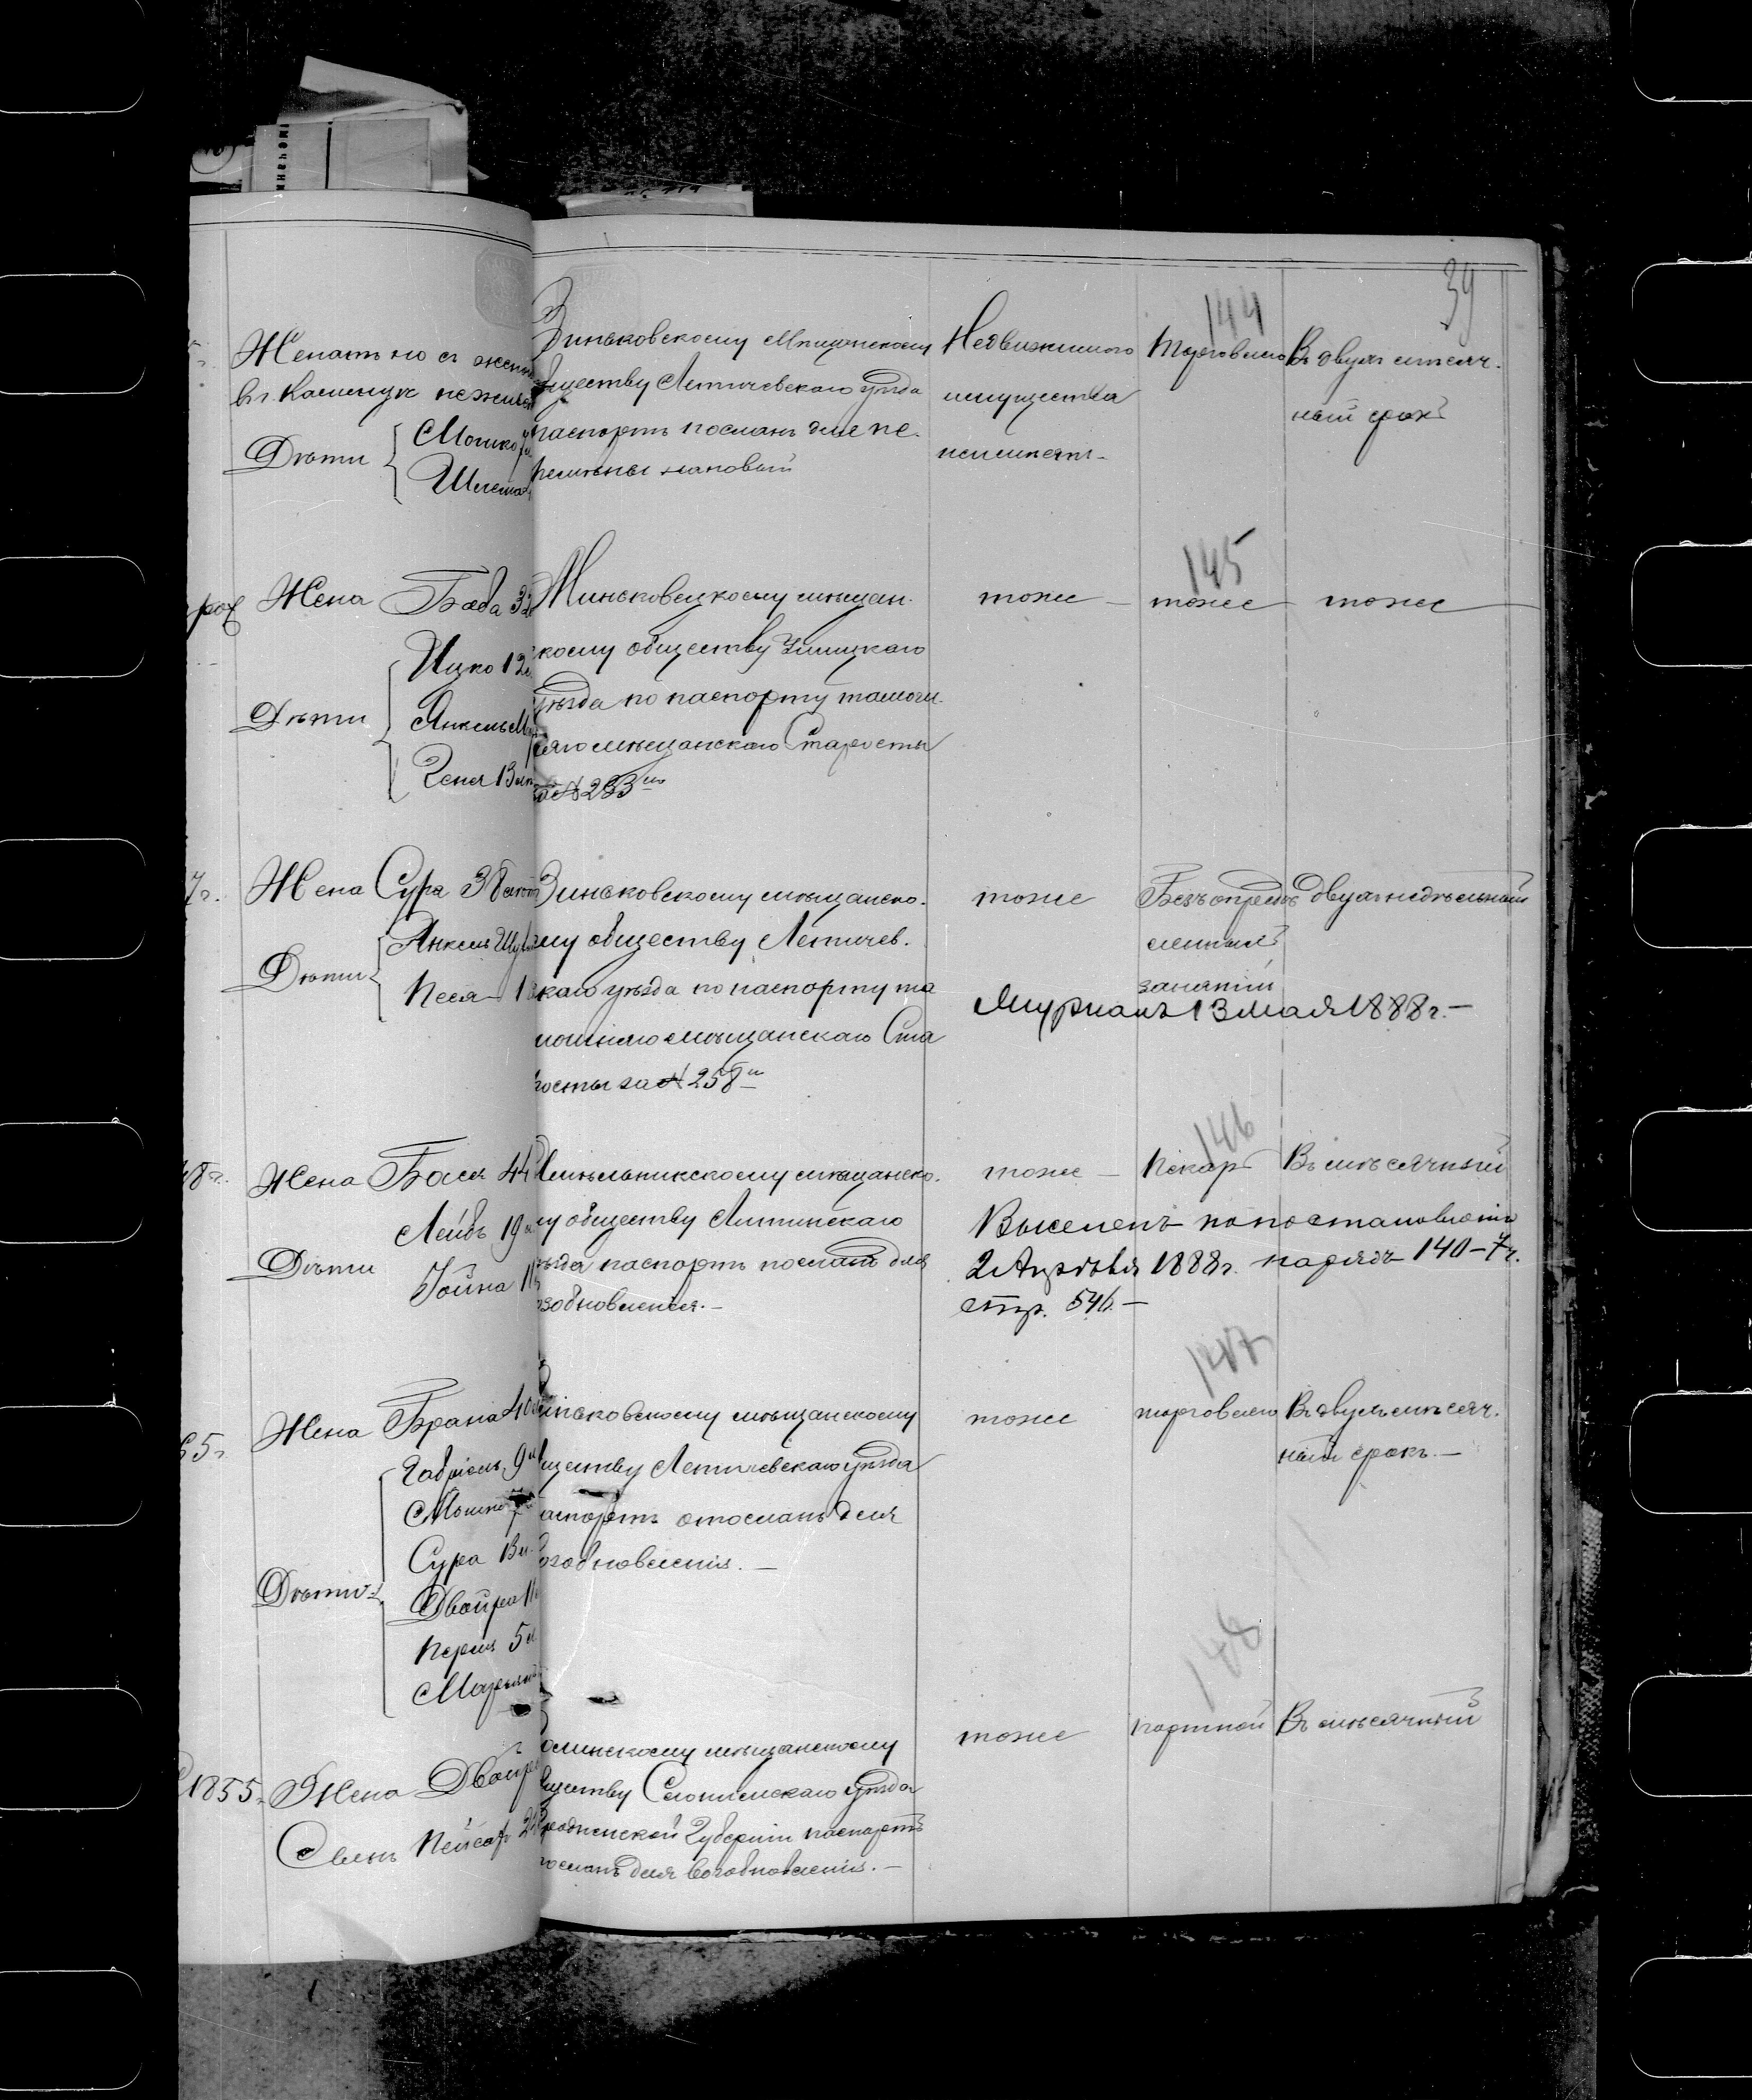 39
144
Женатъ но съ женою
въ г. Каменцѣ не живетъ
Дѣти
Мошко
Шлема
Зиньковскому Мѣщанскому
обществу Летичевскаго уѣзда
паспортъ посланъ для пе-
ремѣны на новый
Недвижимаго
имущества
неимѣетъ-
Торговлею
Въ двухъ мѣсяч-
ный срокъ
145
Жена Баба 32
Дѣти
Ицко 12
Янкель
Геня 13 лѣт
Миньковецкому мѣщан-
скому обществу Ушицкаго
уѣзда по паспорту тамош-
няго мѣщанскаго Старосты
за № 293
тоже
тоже
тоже
7 г.
Жена Сура 38 лѣтъ
Дѣти
Янкель
Песя
Зиньковскому мѣщанско-
му обществу Летичев-
скаго уѣзда по паспорту та
мошняго мѣщанскаго Ста
росты за № 258
тоже
Безъ опредѣ
ленныхъ
занятій
двухнедѣльный
13 мая 1888 г.-
146
48 г.
Жена Бася 44
Дѣти
Лейбъ 19
Іойна 11
Хмѣльникскому мѣщанско-
му обществу Литинскаго
уѣзда паспортъ посланъ для
возобновленія.-
тоже
Пекарь
Въ мѣсячный
Выселенъ по постановленію
2 Апрѣля 1888 г. нарядъ 140-7 г.
стр. 546.-
147
65 г.
Жена Брана 40
Дѣти
Габріель 9
Мошко 7
Сура 13 л.
Двойра 11
Перля 5
Марьямъ
Зиньковскому мѣщанскому
обществу Летичевскаго уѣзда
паспортъ отосланъ для
возобновленія.-
тоже
торговлею
Въ двухъ мѣсяч-
ный срокъ.-
148
1855 г.
Жена Двойра
Сынъ Пейсах
мѣщанскому
обществу Слонимскаго уѣзда
Гродненской Губерніи паспортъ
посланъ для возобновленія.-
тоже
портной
Въ мѣсячный